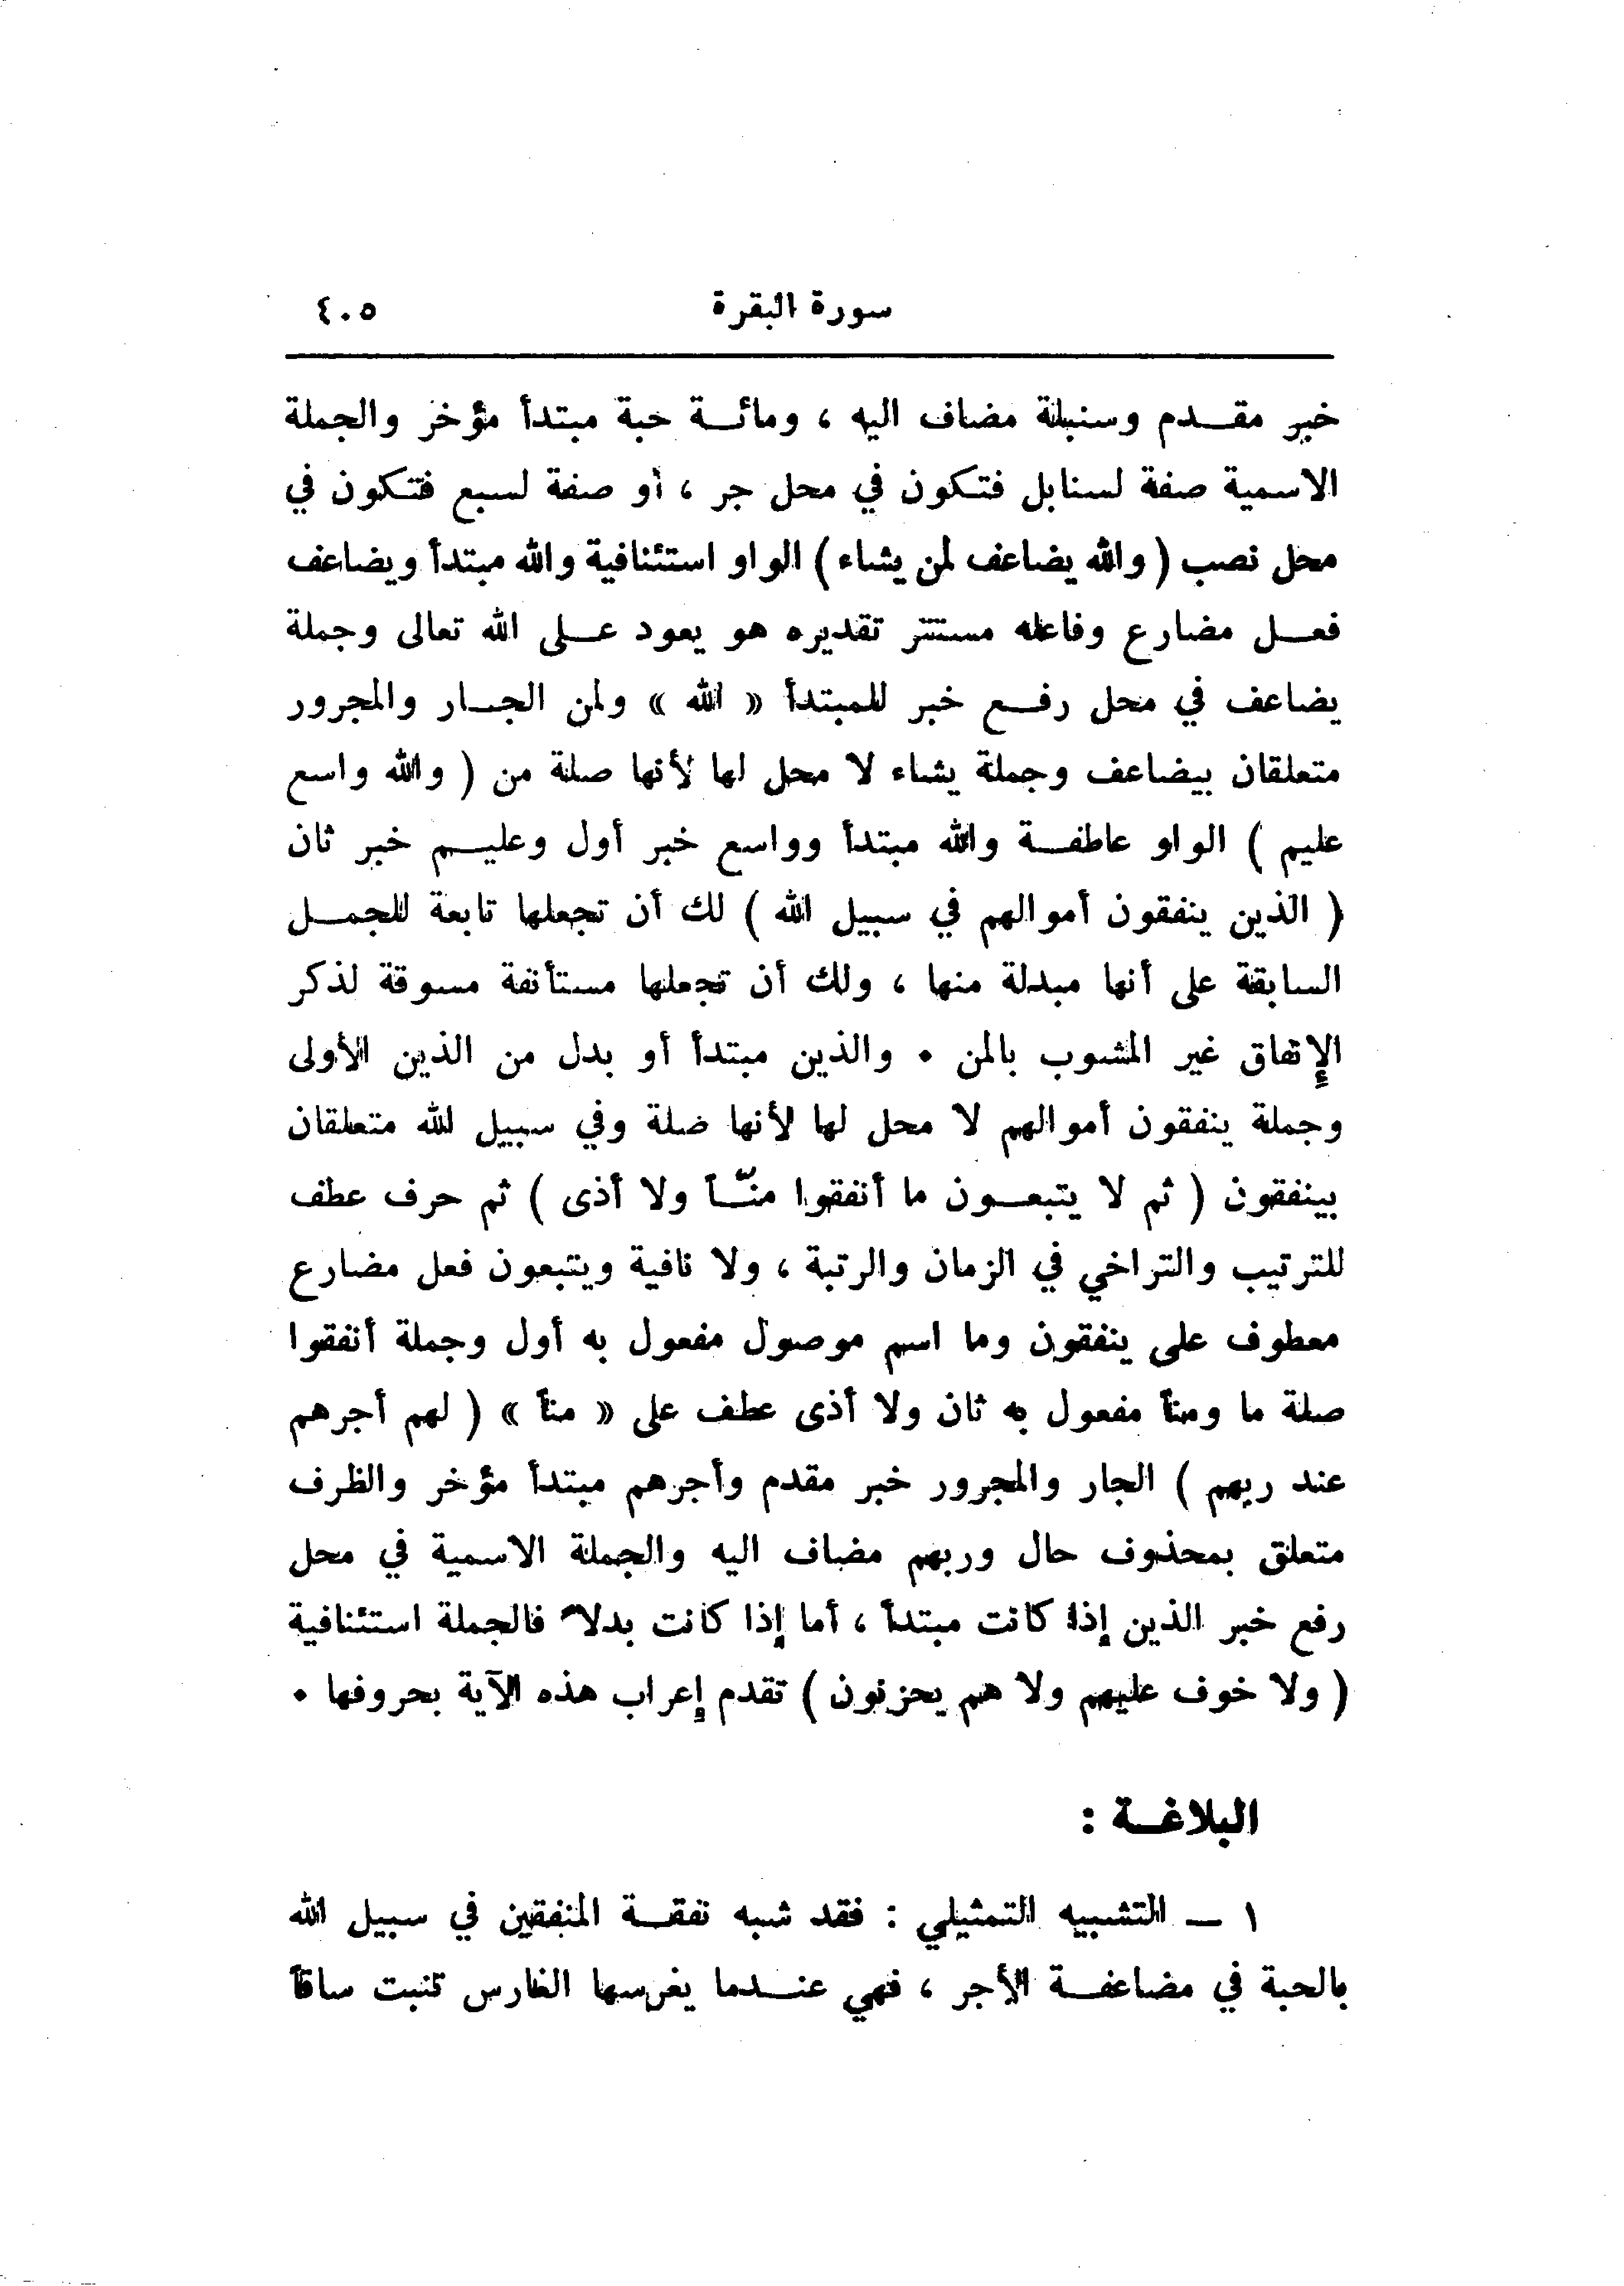 سورة البقرة ٤٠٥
خبر مقـدم وسنبلة مضاف اليه ، ومائـة حبة مبتدأ مؤخر والجملة
الاسمية صفة لسنابل فتكون في محل جر ، أو صفة لسبع فتكون في
محل نصب ( والله يضاعف لمن يشاء ) الواو استئنافية والله مبتدأ ويضاعف
فعـل مضارع وفاعله مستتر تقديره هو يعود عـلى الله تعالى وجملة
يضاعف في محل رفـع خبر للمبتدأ « الله » ولمن الجـار والمجرور
متعلقان بيضاعف وجملة يشاء لا محل لها لأنها صلة من ( والله واسع
عليم ) الواو عاطفـة والله مبتدأ وواسع خبر أول وعليـم خبر ثان
( الذين ينفقون أموالهم في سبيل الله ) لك أن تجعلها تابعة للجمـل
السابقة على أنها مبدلة منها ، ولك أن تجعلها مستأنفة مسوقة لذكر
الإنفاق غير المشوب بالمن . والذين مبتدأ أو بدل من الذين الأولى
وجملة ينفقون أموالهم لا محل لها لأنها صلة وفي سبيل لله متعلقان
بينفقون ( ثم لا يتبعـون ما أنفقوا منّـاً ولا أذى ) ثم حرف عطف
للترتيب والتراخي في الزمان والرتبة ، ولا نافية ويتبعون فعل مضارع
معطوف على ينفقون وما اسم موصول مفعول به أول وجملة أنفقوا
صلة ما ومناً مفعول به ثان ولا أذى عطف على « مناً » ( لهم أجرهم
عند ربهم ) الجار والمجرور خبر مقدم وأجرهم مبتدأ مؤخر والظرف
متعلق بمحذوف حال وربهم مضاف اليه والجملة الاسمية في محل
رفع خبر الذين إذا كانت مبتدأ ، أما إذا كانت بدلاً فالجملة استئنافية
( ولا خوف عليهم ولا هم يحزنون ) تقدم إعراب هذه الآية بحروفها .
البلاغـة :
١ ـ التشبيه التمثيلي : فقد شبه نفقـة المنفقين في سبيل الله
بالحبة في مضاعفـة الأجر ، فهي عنـدما يغرسها الغارس تنبت ساقاً